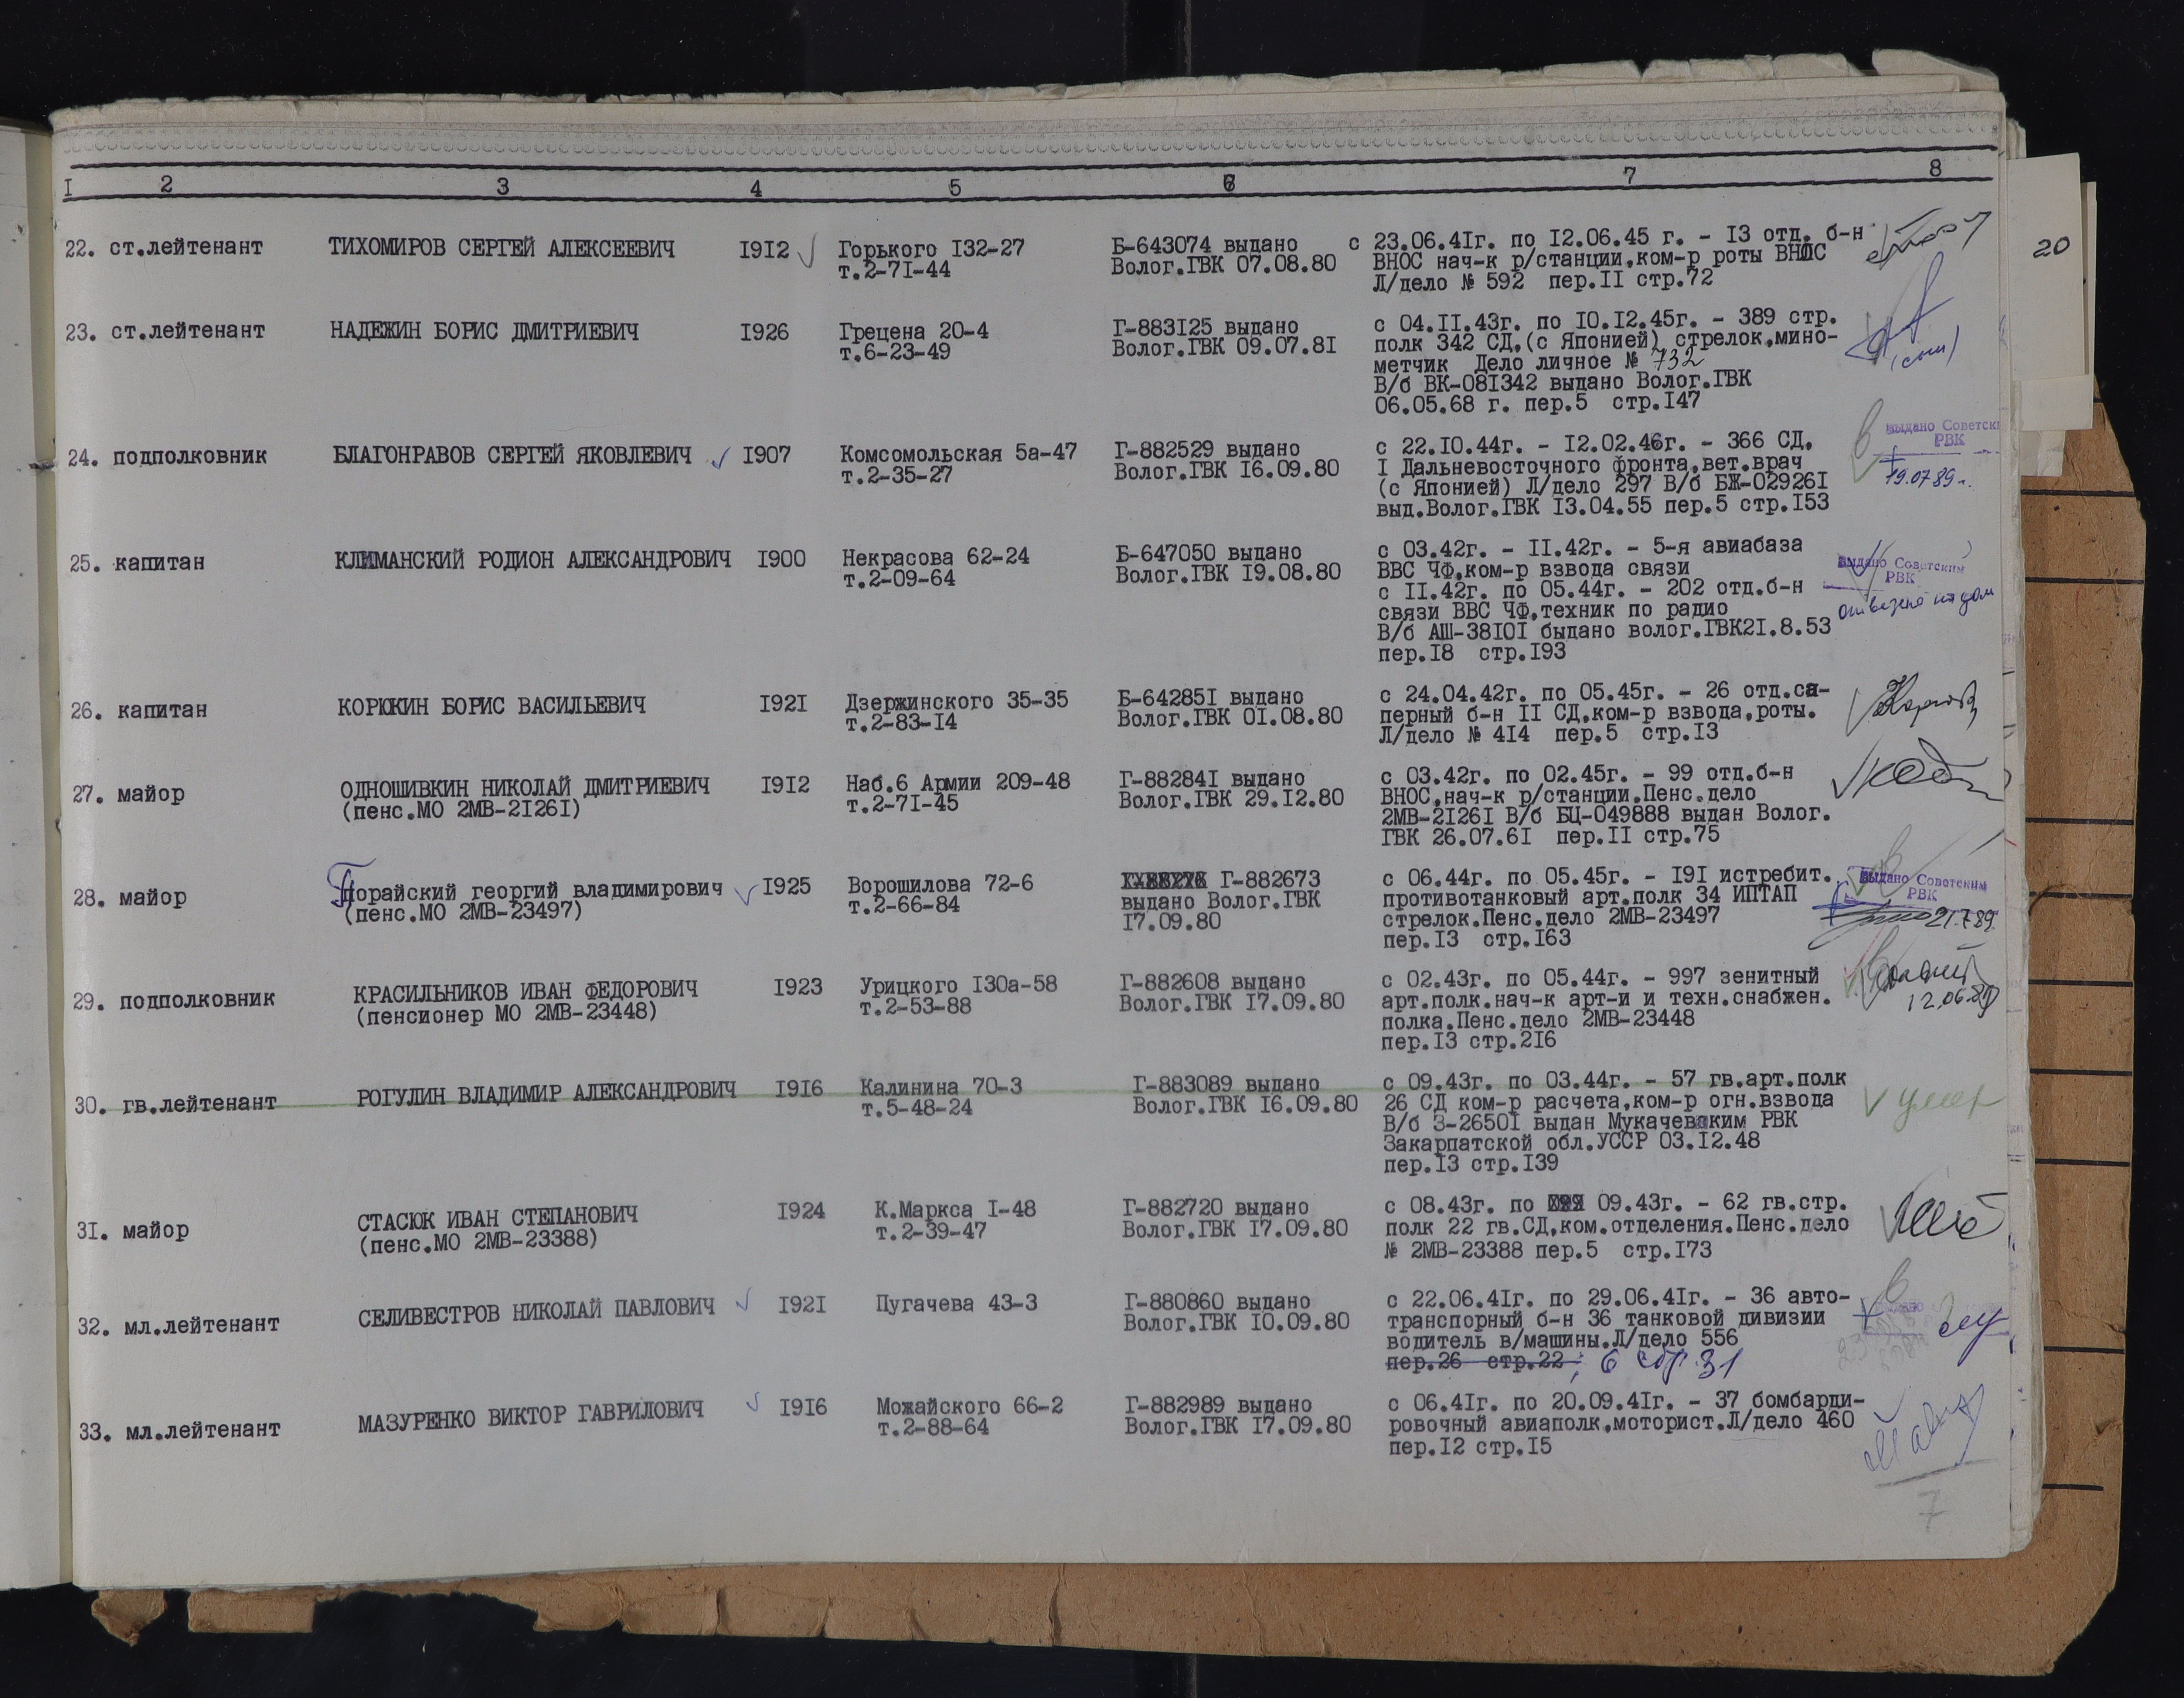 I 2 3 4 5 6 7 8
20
22. ст.лейтенант ТИХОМИРОВ СЕРГЕЙ АЛЕКСЕЕВИЧ I9I2 Горького I32-27 Б-643074 выдано с 23.06.4Iг. по I2.06.45 г. - I3 отд. б-н
т.2-7I-44 Волог.ГВК 07.08.80 ВНОС нач-к р/станции,ком-р роты ВНОС
Л/дело № 592 пер.II стр.72
23. ст.лейтенант НАДЕЖИН БОРИС ДМИТРИЕВИЧ I926 Грецена 20-4 Г-883I25 выдано с 04.II.43г. по I0.I2.45г. - 389 стр.
т.6-23-49 Волог.ГВК 09.07.8I полк 342 СД,(с Японией) стрелок,мино-
метчик Дело личное № 732
В/б ВК-08I342 выдано Волог.ГВК
06.05.68 г. пер.5 стр.I47
(сын)
24. подполковник БЛАГОНРАВОВ СЕРГЕЙ ЯКОВЛЕВИЧ I907 Комсомольская 5а-47 Г-882529 выдано с 22.I0.44г. - I2.02.46г. - 366 СД,
т.2-35-27 Волог.ГВК I6.09.80 I Дальневосточного фронта,вет.врач
(с Японией) Л/дело 297 В/б БЖ-02926I
выд.Волог.ГВК I3.04.55 пер.5 стр.I53
выдано Советск
РВК
19.07.89г.
25. капитан КЛИМАНСКИЙ РОДИОН АЛЕКСАНДРОВИЧ I900 Некрасова 62-24 Б-647050 выдано с 03.42г. - II.42г. - 5-я авиабаза
т.2-09-64 Волог.ГВК I9.08.80 ВВС ЧФ,ком-р взвода связи
с II.42г. по 05.44г. - 202 отд.б-н
связи ВВС ЧФ,техник по радио
В/б АШ-38I0I быдано волог.ГВК2I.8.53
пер.I8 стр.I93
выдано Советским
РВК
отвезено на дом
26. капитан КОРЮКИН БОРИС ВАСИЛЬЕВИЧ I92I Дзержинского 35-35 Б-64285I выдано с 24.04.42г. по 05.45г. - 26 отд.са-
т.2-83-I4 Волог.ГВК 0I.08.80 перный б-н II СД,ком-р взвода,роты.
Л/дело № 4I4 пер.5 стр.I3
27. майор ОДНОШИВКИН НИКОЛАЙ ДМИТРИЕВИЧ I9I2 Наб.6 Армии 209-48 Г-88284I выдано с 03.42г. по 02.45г. - 99 отд.б-н
(пенс.МО 2МВ-2I26I) т.2-7I-45 Волог.ГВК 29.I2.80 ВНОС,нач-к р/станции.Пенс.дело
2МВ-2I26I В/б БЦ-049888 выдан Волог.
ГВК 26.07.6I пер.II стр.75
28. майор Порайский георгий владимирович I925 Ворошилова 72-6 Г-882673 с 06.44г. по 05.45г. - I9I истребит.
(пенс.МО 2МВ-23497) т.2-66-84 выдано Волог.ГВК противотанковый арт.полк 34 ИПТАП
I7.09.80 стрелок.Пенс.дело 2МВ-23497
пер.I3 стр.I63
выдано Советским
РВК
21.7.89.
29. подполковник КРАСИЛЬНИКОВ ИВАН ФЕДОРОВИЧ I923 Урицкого I30а-58 Г-882608 выдано с 02.43г. по 05.44г. - 997 зенитный
(пенсионер МО 2МВ-23448) т.2-53-88 Волог.ГВК I7.09.80 арт.полк.нач-к арт-и и техн.снабжен.
полка.Пенс.дело 2МВ-23448
пер.I3 стр.2I6
12.06.89
30. гв.лейтенант РОГУЛИН ВЛАДИМИР АЛЕКСАНДРОВИЧ I9I6 Калинина 70-3 Г-883089 выдано с 09.43г. по 03.44г. - 57 гв.арт.полк
т.5-48-24 Волог.ГВК I6.09.80 26 СД ком-р расчета,ком-р огн.взвода
В/б З-2650I выдан Мукачевским РВК
Закарпатской обл.УССР 03.I2.48
пер.I3 стр.I39
умер
31. майор СТАСЮК ИВАН СТЕПАНОВИЧ I924 К.Маркса I-48 Г-882720 выдано с 08.43г. по 09.43г. - 62 гв.стр.
(пенс.МО 2МВ-23388) т.2-39-47 Волог.ГВК I7.09.80 полк 22 гв.СД,ком.отделения.Пенс.дело
№ 2МВ-23388 пер.5 стр.I73
32. мл.лейтенант СЕЛИВЕСТРОВ НИКОЛАЙ ПАВЛОВИЧ I92I Пугачева 43-3 Г-880860 выдано с 22.06.4Iг. по 29.06.4Iг. - 36 авто-
Волог.ГВК I0.09.80 транспорный б-н 36 танковой дивизии
водитель в/машины.Л/дело 556
пер.26 стр.22 ; 6 стр. 31
33. мл.лейтенант МАЗУРЕНКО ВИКТОР ГАВРИЛОВИЧ I9I6 Можайского 66-2 Г-882989 выдано с 06.4Iг. по 20.09.4Iг. - 37 бомбарди-
т.2-88-64 Волог.ГВК I7.09.80 ровочный авиаполк,моторист.Л/дело 460
пер.I2 стр.I5
7